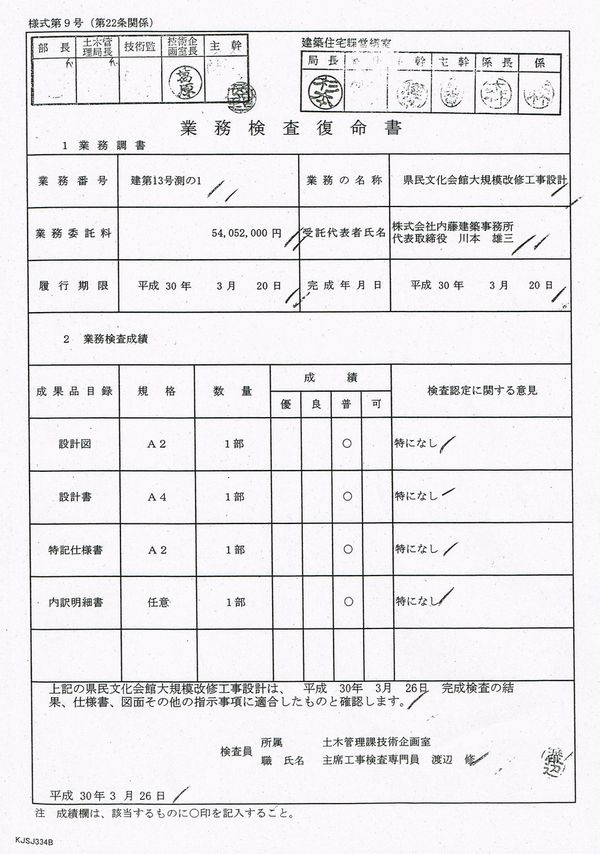 様式第9号（第22条関係）
部長 土木管理局長 技術監 技術企画室長 主幹
建築住宅課営繕室
局長 主幹 係長 係
業務検査復命書
1 業務調書
業務番号 建第13号測の1 業務の名称 県民文化会館大規模改修工事設計
業務委託料 54,052,000円 受託代表者氏名 株式会社内藤建築事務所
代表取締役 川本 雄三
履行期限 平成 30年 3月 20日 完成年月日 平成 30年 3月 20日
2 業務検査成績
成果品目録 規格 数量 成績 検査認定に関する意見
優 良 普 可
設計図 A2 1部 ○ 特になし
設計書 A4 1部 ○ 特になし
特記仕様書 A2 1部 ○ 特になし
内訳明細書 任意 1部 ○ 特になし
上記の県民文化会館大規模改修工事設計は、 平成 30年 3月 26日 完成検査の結
果、仕様書、図面その他の指示事項に適合したものと確認します。
検査員 所属 土木管理課技術企画室
職 氏名 主席工事検査専門員 渡辺 修
平成 30年 3月 26日
注 成績欄は、該当するものに○印を記入すること。
KJSJ334B